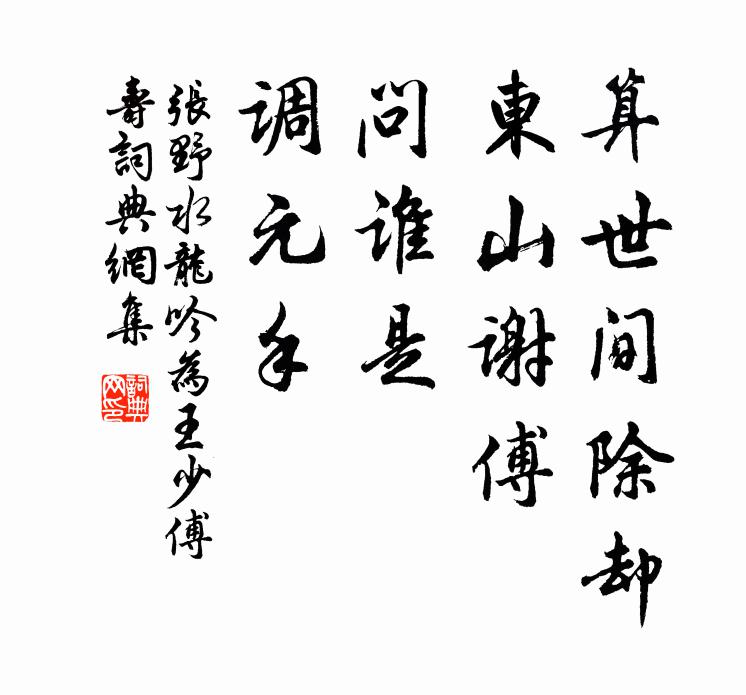 算世间除却
東山謝傅
问谁是
调元手
張野水龍吟為王少傅
壽詞典網集
詞典网印